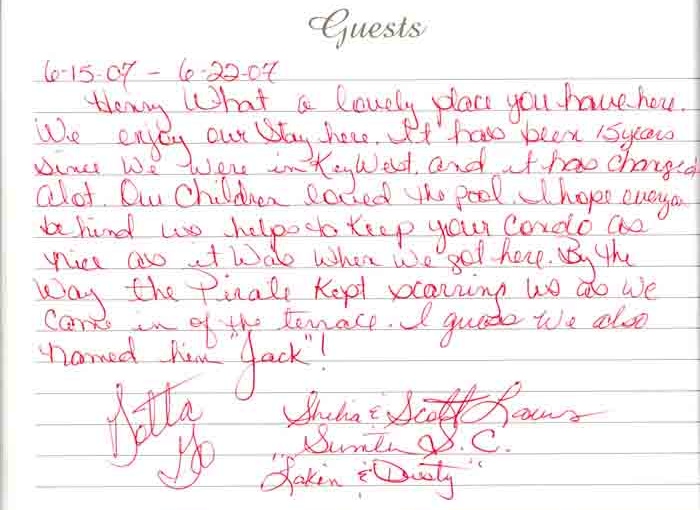 Guests
6-15-07 - 6-22-07
Henry What a lovely place you have here.
We enjoy our Stay here. It has been 15 years
since we were in Key West. and it has changed
alot. Our Children loved the pool. I hope everyone
behind us helps to keep your Condo as
nice as it was when we got here. By the
way the Pirate kept scarring us as we
came in of the terrace. I guess we also
named him "Jack"!
Gotta Go
Shelia & Scott
Sumter S.C.
"Lakin & Dusty"